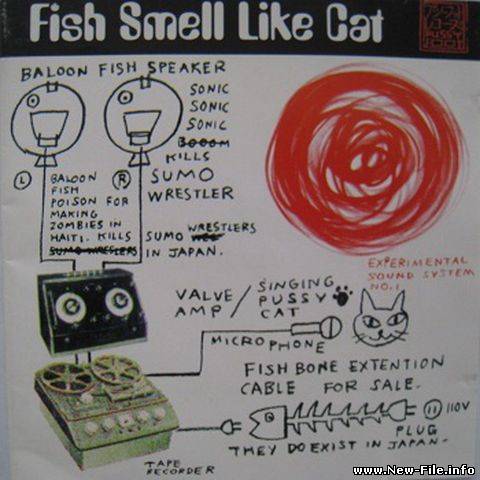 Fish Smell Like Cat
PUSSY
BALOON FISH SPEAKER
SONIC
SONIC
SONIC
BOOOM
KILLS
SUMO
WRESTLER
L
R
BALOON
FISH
POISON FOR
MAKING
ZOMBIES IN
HAITI. KILLS
SUMO WRESLERS
SUMO WRESTLERS
IN JAPAN.
EXPERIMENTAL
SOUND SYSTEM
NO.1
VALVE / SINGING
AMP PUSSY
CAT
MICROPHONE
FISH BONE EXTENTION
CABLE FOR SALE.
110V
PLUG
THEY DO EXIST IN JAPAN.
TAPE
RECORDER
www.New-File.info